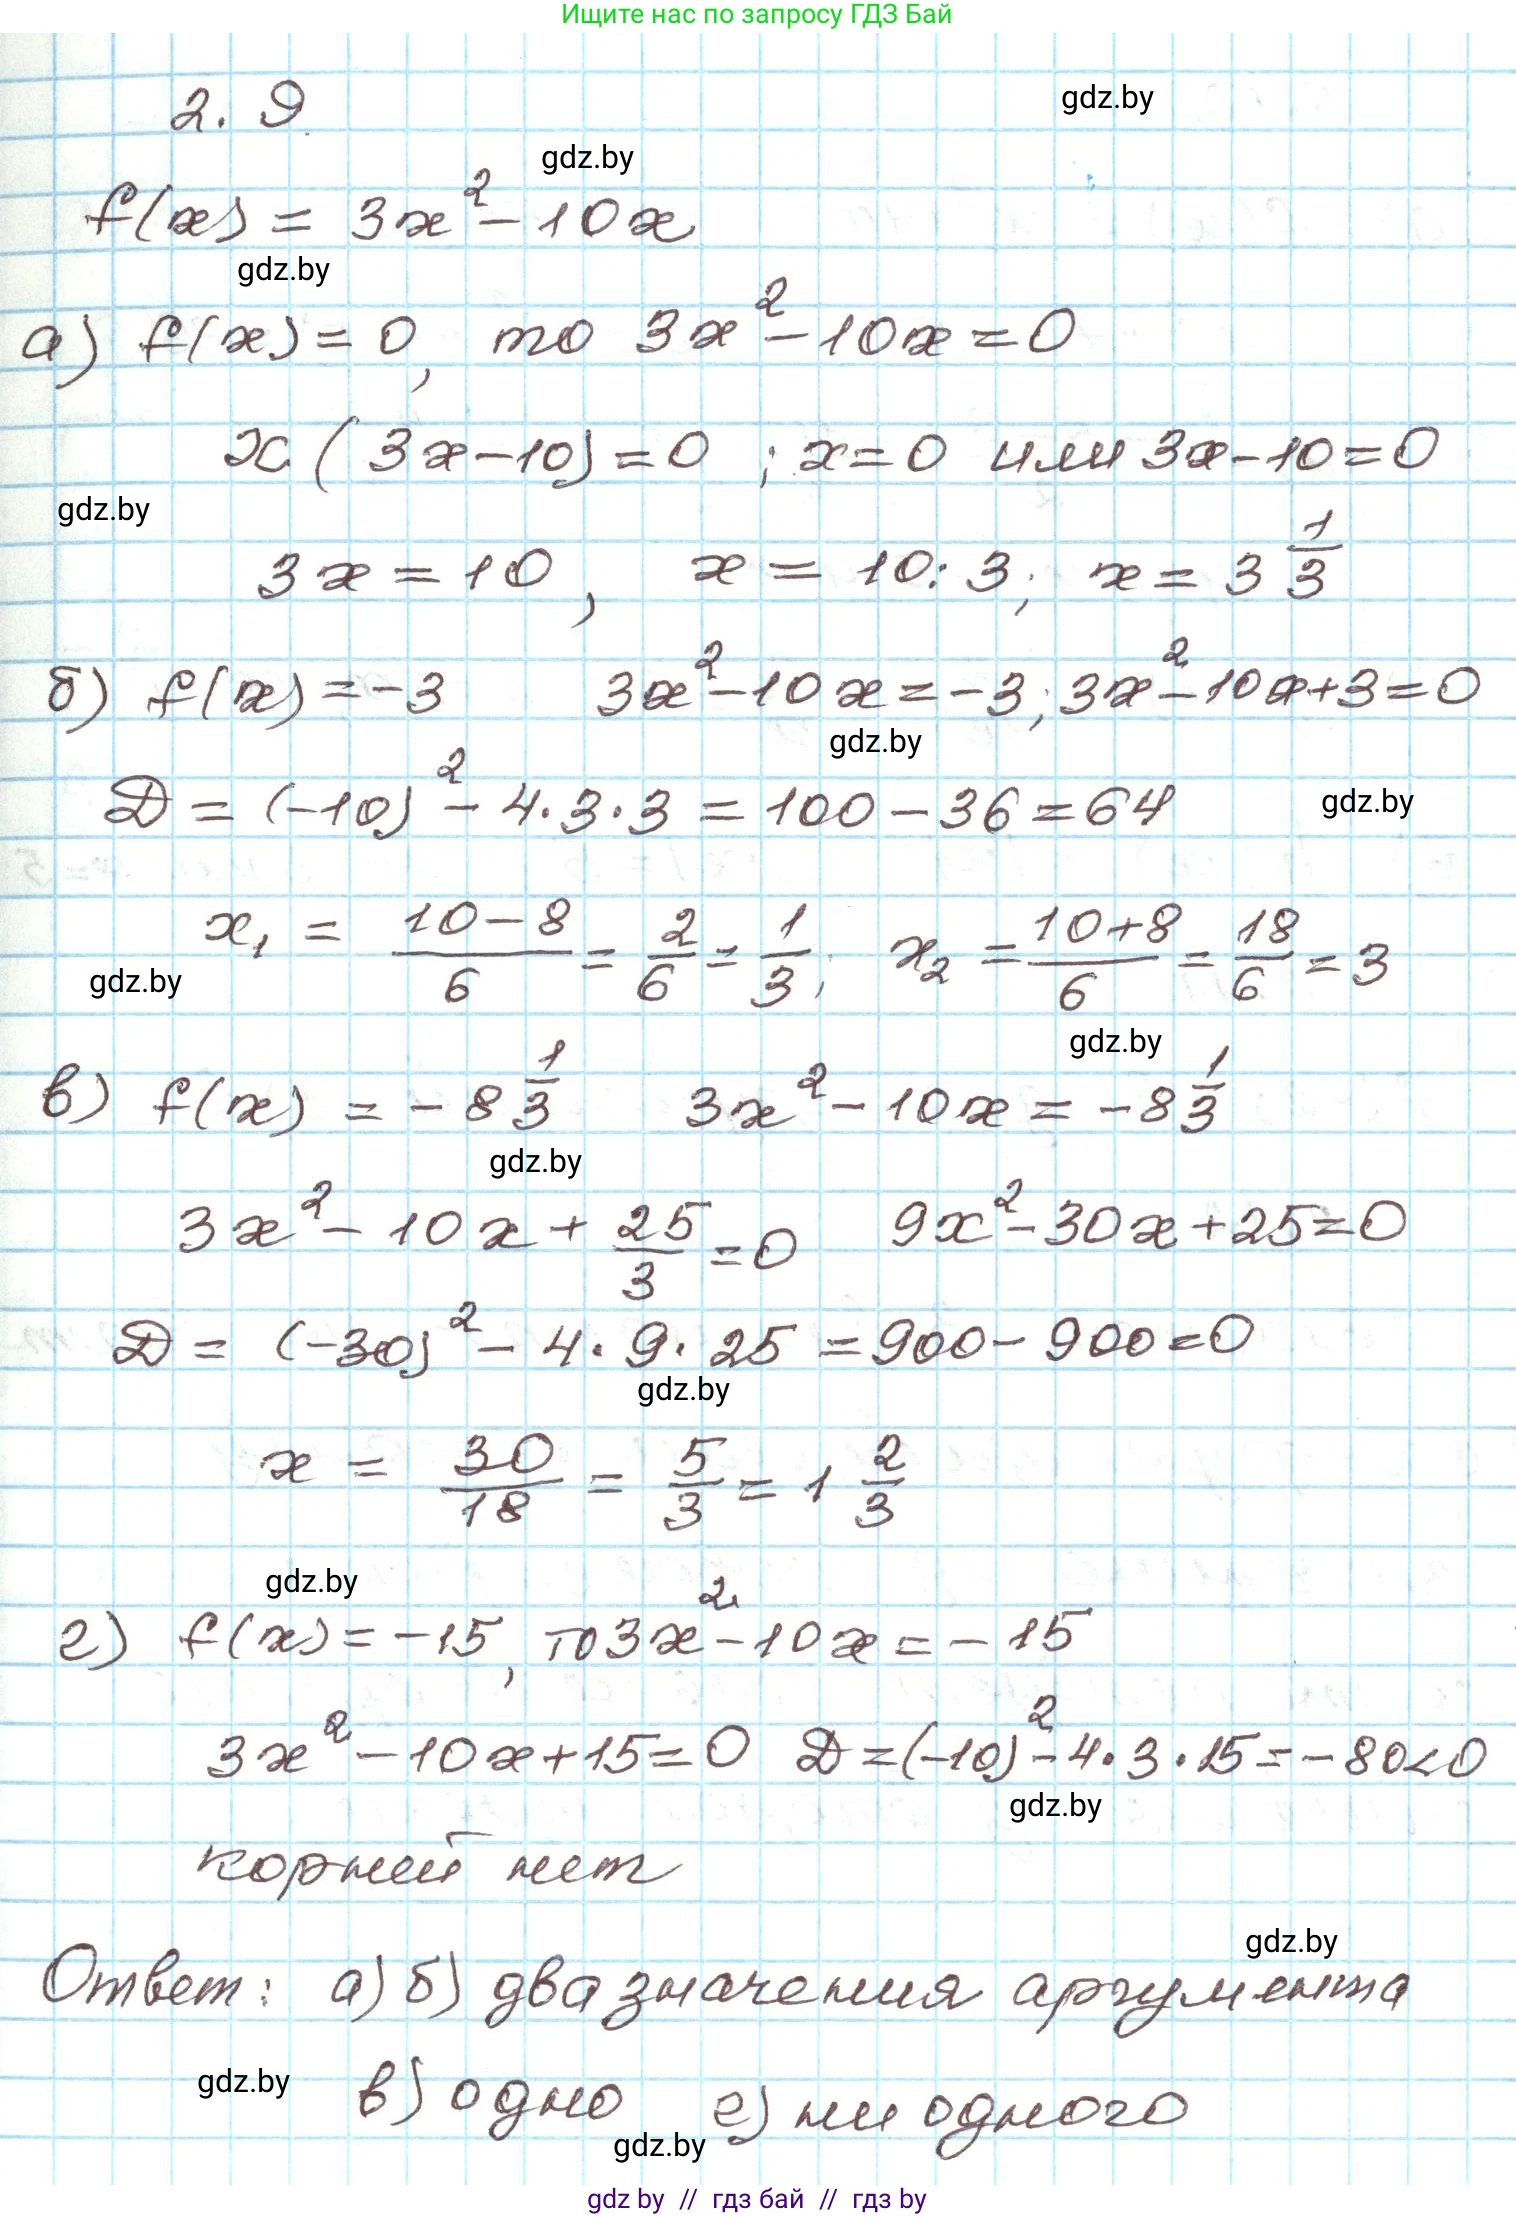 Ищите нас по запросу ГДЗ Бай
2.9
gdz.by
gdz.by
f(x) = 3x² - 10x
gdz.by
а) f(x) = 0, то 3x² - 10x = 0
x(3x - 10) = 0 ; x = 0 или 3x - 10 = 0
gdz.by
3x = 10, x = 10 : 3; x = 3 1/3
б) f(x) = -3 3x² - 10x = -3; 3x² - 10x + 3 = 0
gdz.by
D = (-10)² - 4·3·3 = 100 - 36 = 64
gdz.by
x₁ = (10 - 8)/6 = 2/6 = 1/3; x₂ = (10 + 8)/6 = 18/6 = 3
gdz.by
gdz.by
в) f(x) = -8 1/3 3x² - 10x = -8 1/3
gdz.by
3x² - 10x + 25/3 = 0 9x² - 30x + 25 = 0
D = (-30)² - 4·9·25 = 900 - 900 = 0
gdz.by
x = 30/18 = 5/3 = 1 2/3
gdz.by
г) f(x) = -15, то 3x² - 10x = -15
3x² - 10x + 15 = 0 D = (-10)² - 4·3·15 = -80 < 0
gdz.by
корней нет
gdz.by
Ответ: а) б) два значения аргумента
gdz.by
в) одно г) ни одного
gdz.by
gdz by // гдз бай // гдз by